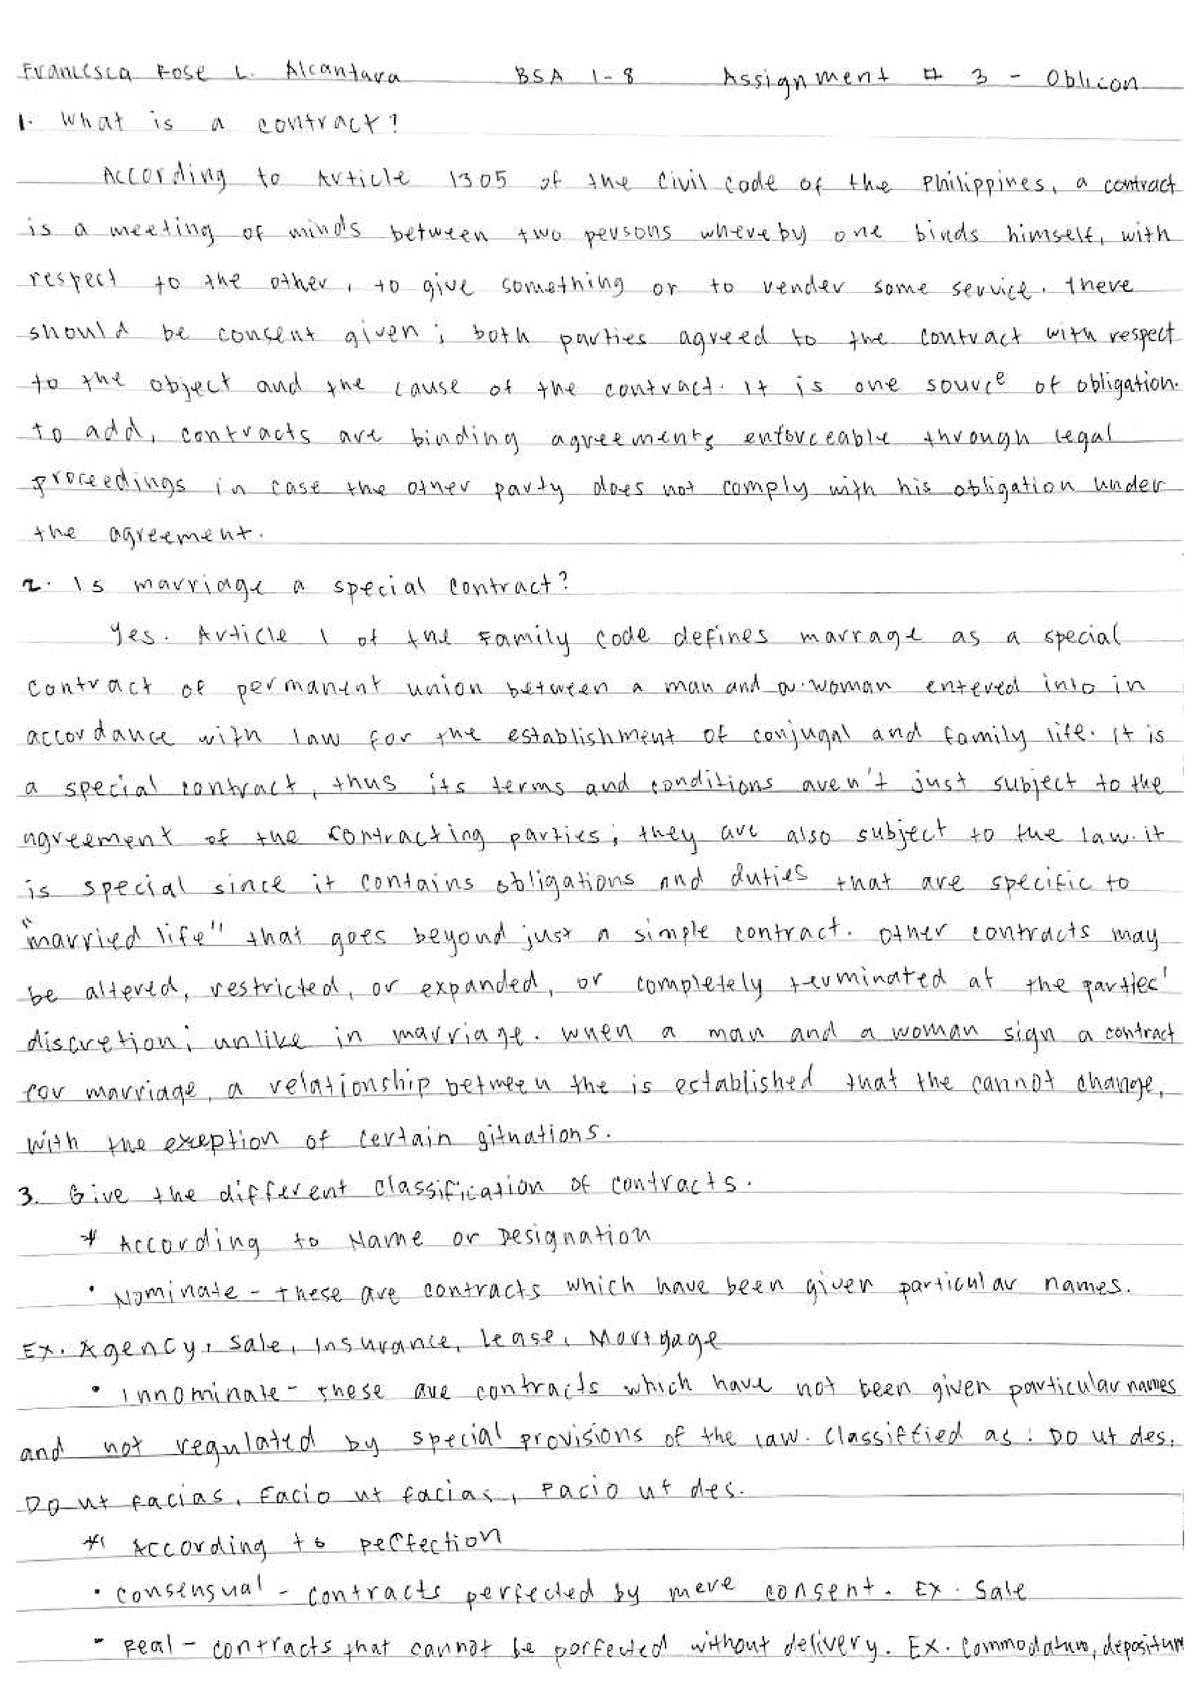 Francesca Rose L. Alcantara BSA 1-8 Assignment # 3 - Oblicon
1. What is a contract?
According to Article 1305 of the Civil Code of the Philippines, a contract
is a meeting of minds between two persons whereby one binds himself, with
respect to the other, to give something or to render some service. There
should be consent given; both parties agreed to the contract with respect
to the object and the cause of the contract. It is one source of obligation.
To add, contracts are binding agreements enforceable through legal
proceedings in case the other party does not comply with his obligation under
the agreement.
2. Is marriage a special contract?
Yes. Article 1 of the Family Code defines marrage as a special
contract of permanent union between a man and a woman entered into in
accordance with law for the establishment of conjugal and family life. It is
a special contract, thus its terms and conditions aren't just subject to the
agreement of the contracting parties; they are also subject to the law. It
is special since it contains obligations and duties that are specific to
"married life" that goes beyond just a simple contract. Other contracts may
be altered, restricted, or expanded, or completely terminated at the parties'
discretion; unlike in marriage. When a man and a woman sign a contract
for marriage, a relationship between the is established that the cannot change,
with the exception of certain situations.
3. Give the different classification of contracts.
* According to Name or Designation
• Nominate - these are contracts which have been given particular names.
Ex. Agency, Sale, Insurance, Lease, Mortgage
• Innominate - these are contracts which have not been given particular names
and not regulated by special provisions of the law. Classiffied as: Do ut des,
Do ut facias, Facio ut facias, Facio ut des.
* According to perfection
• Consensual - contracts perfected by mere consent. Ex. Sale
- Real - contracts that cannot be perfected without delivery. Ex. Commodatum, depositum